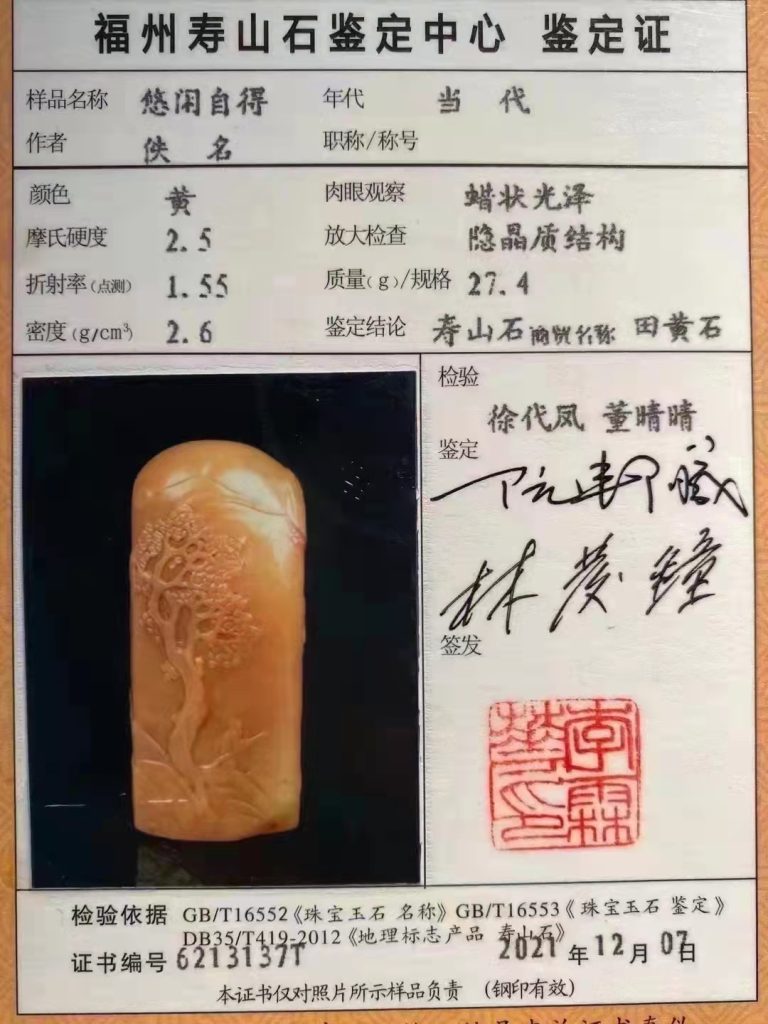 福州寿山石鉴定中心 鉴定证
样品名称 悠闲自得 年代 当 代
作者 佚 名 职称/称号
颜色 黄 肉眼观察 蜡状光泽
摩氏硬度 2.5 放大检查 隐晶质结构
折射率(点测) 1.55 质量(g)/规格 27.4
密度(g/cm³) 2.6 鉴定结论 寿山石 商贸名称 田黄石
检验
徐代凤 董晴晴
鉴定
林茂钟
签发
检验依据 GB/T16552《珠宝玉石 名称》GB/T16553《珠宝玉石 鉴定》
DB35/T419-2012《地理标志产品 寿山石》
证书编号 6213137T 2021 年 12 月 07日
本证书仅对照片所示样品负责 (钢印有效)